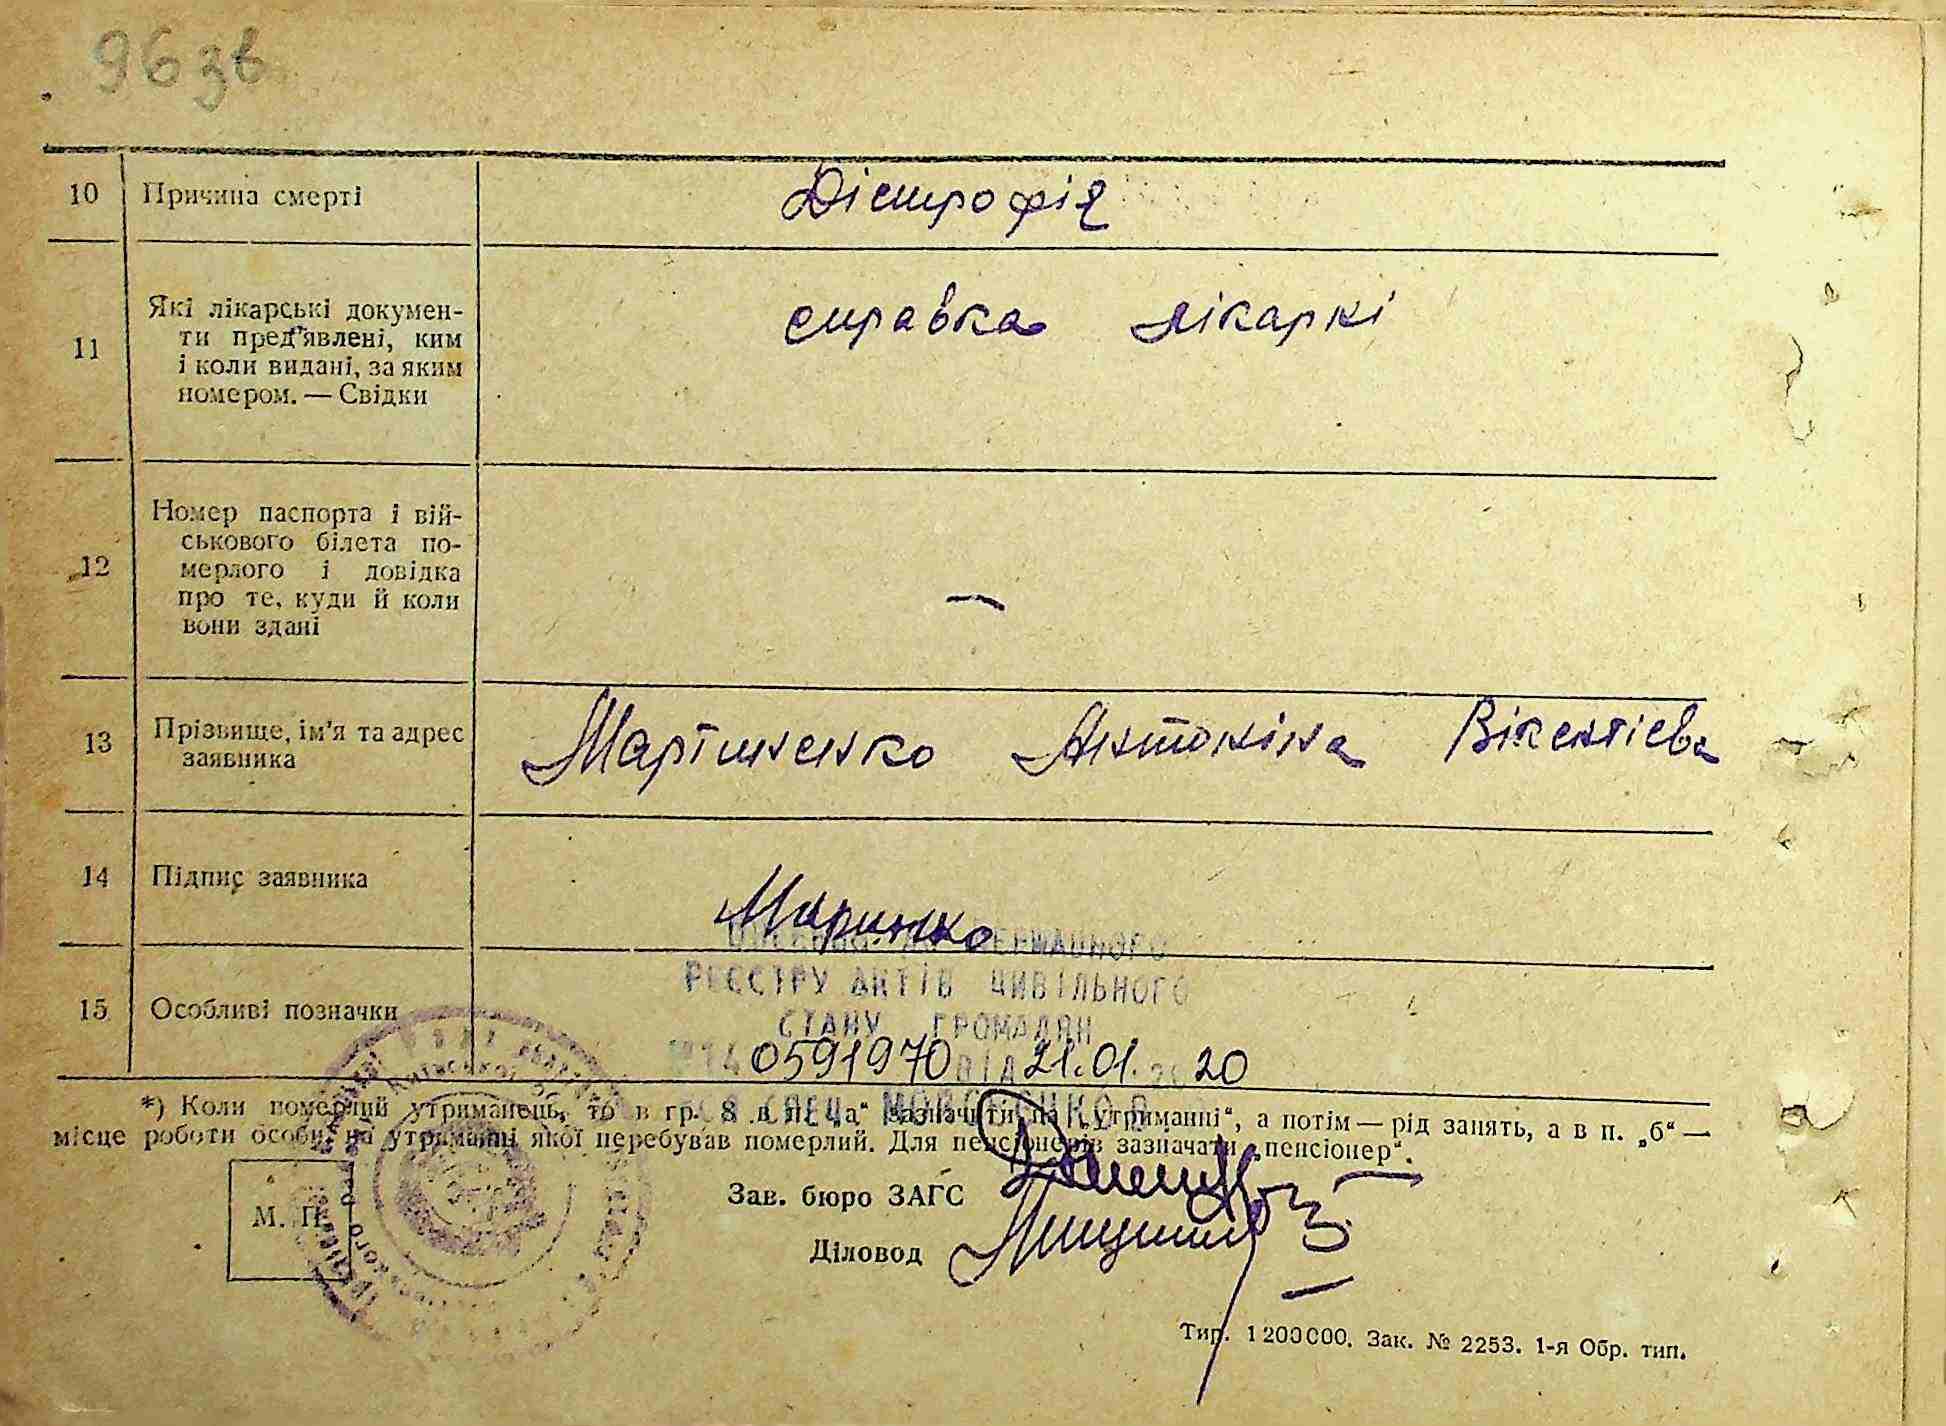 96 зв
10 Причина смерті Дістрофія
11 Які лікарські докумен-
ти пред'явлені, ким
і коли видані, за яким
номером. — Свідки
справка лікаркі
12 Номер паспорта і вій-
ськового білета по-
мерлого і довідка
про те, куди й коли
вони здані
—
13 Прізвище, ім'я та адрес
заявника
Мартиненко Антоніна Вікентієва
14 Підпис заявника
15 Особливі позначки
ДЕРЖАВНОГО
РЕЄСТРУ АКТІВ ЦИВІЛЬНОГО
СТАНУ ГРОМАДЯН
0591970 ВІД 21.01.2020
*) Коли померлий утриманець, то в гр. 8 в п. „а“ зазначити „на утриманні“, а потім — рід занять, а в п. „б“ —
місце роботи особи, на утриманні якої перебував померлий. Для пенсіонерів зазначати „пенсіонер“.
М. П.
Зав. бюро ЗАГС
Діловод
Тир. 1200000. Зак. № 2253. 1-я Обр. тип.